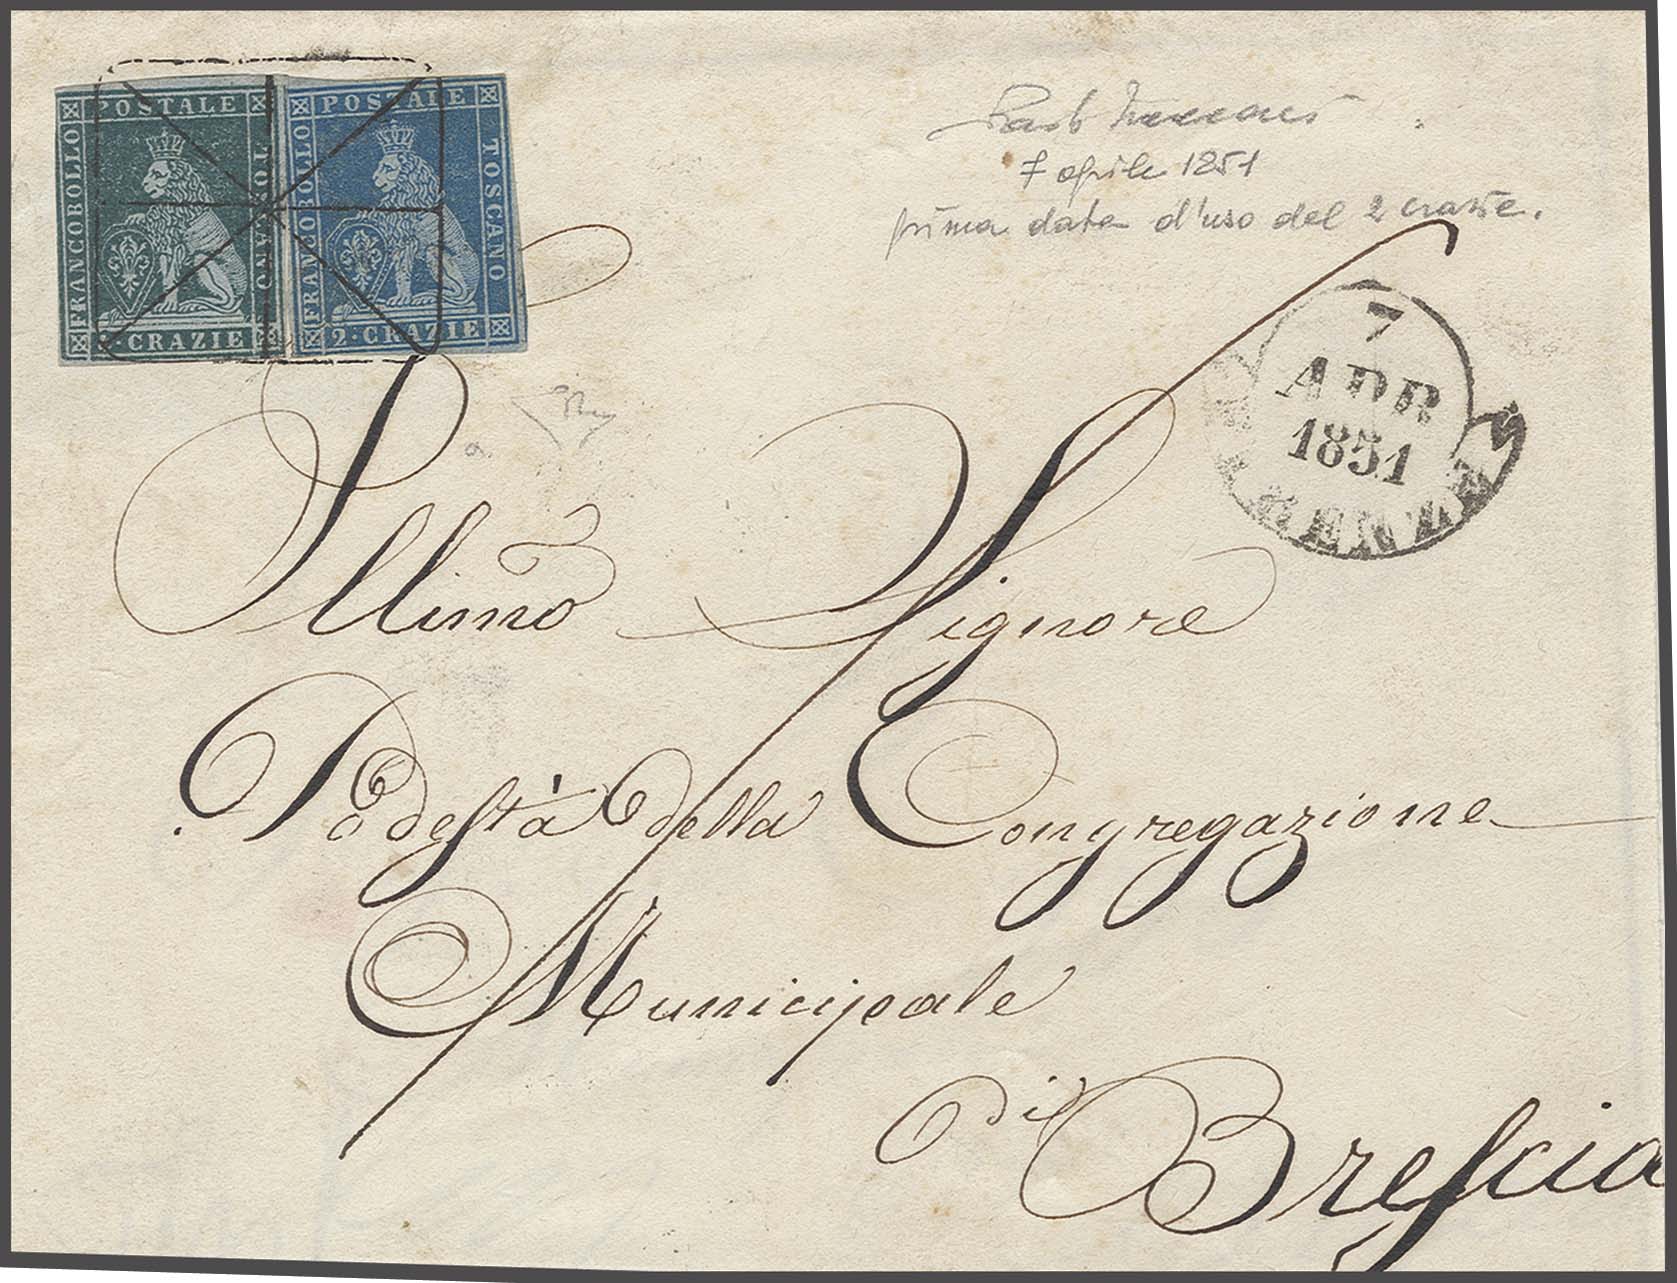 FRANCOBOLLO POSTALE TOSCANO
CRAZIE
FRANCOBOLLO POSTALE TOSCANO
2·CRAZIE
7 aprile 1851
prima data d'uso del 2 crazie.
7
APR
1851
FIRENZE
Illmo Signore
Podestà della Congregazione
Municipale
di Brescia